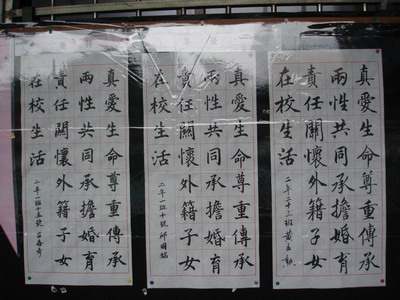 真愛生命尊重傳承
兩性共同承擔婚育
責任關懷外籍子女
在校生活
二年二十三班
真愛生命尊重傳承
兩性共同承擔婚育
責任關懷外籍子女
在校生活
二年一班十號
真愛生命尊重傳承
兩性共同承擔婚育
責任關懷外籍子女
在校生活
二年一班十五號